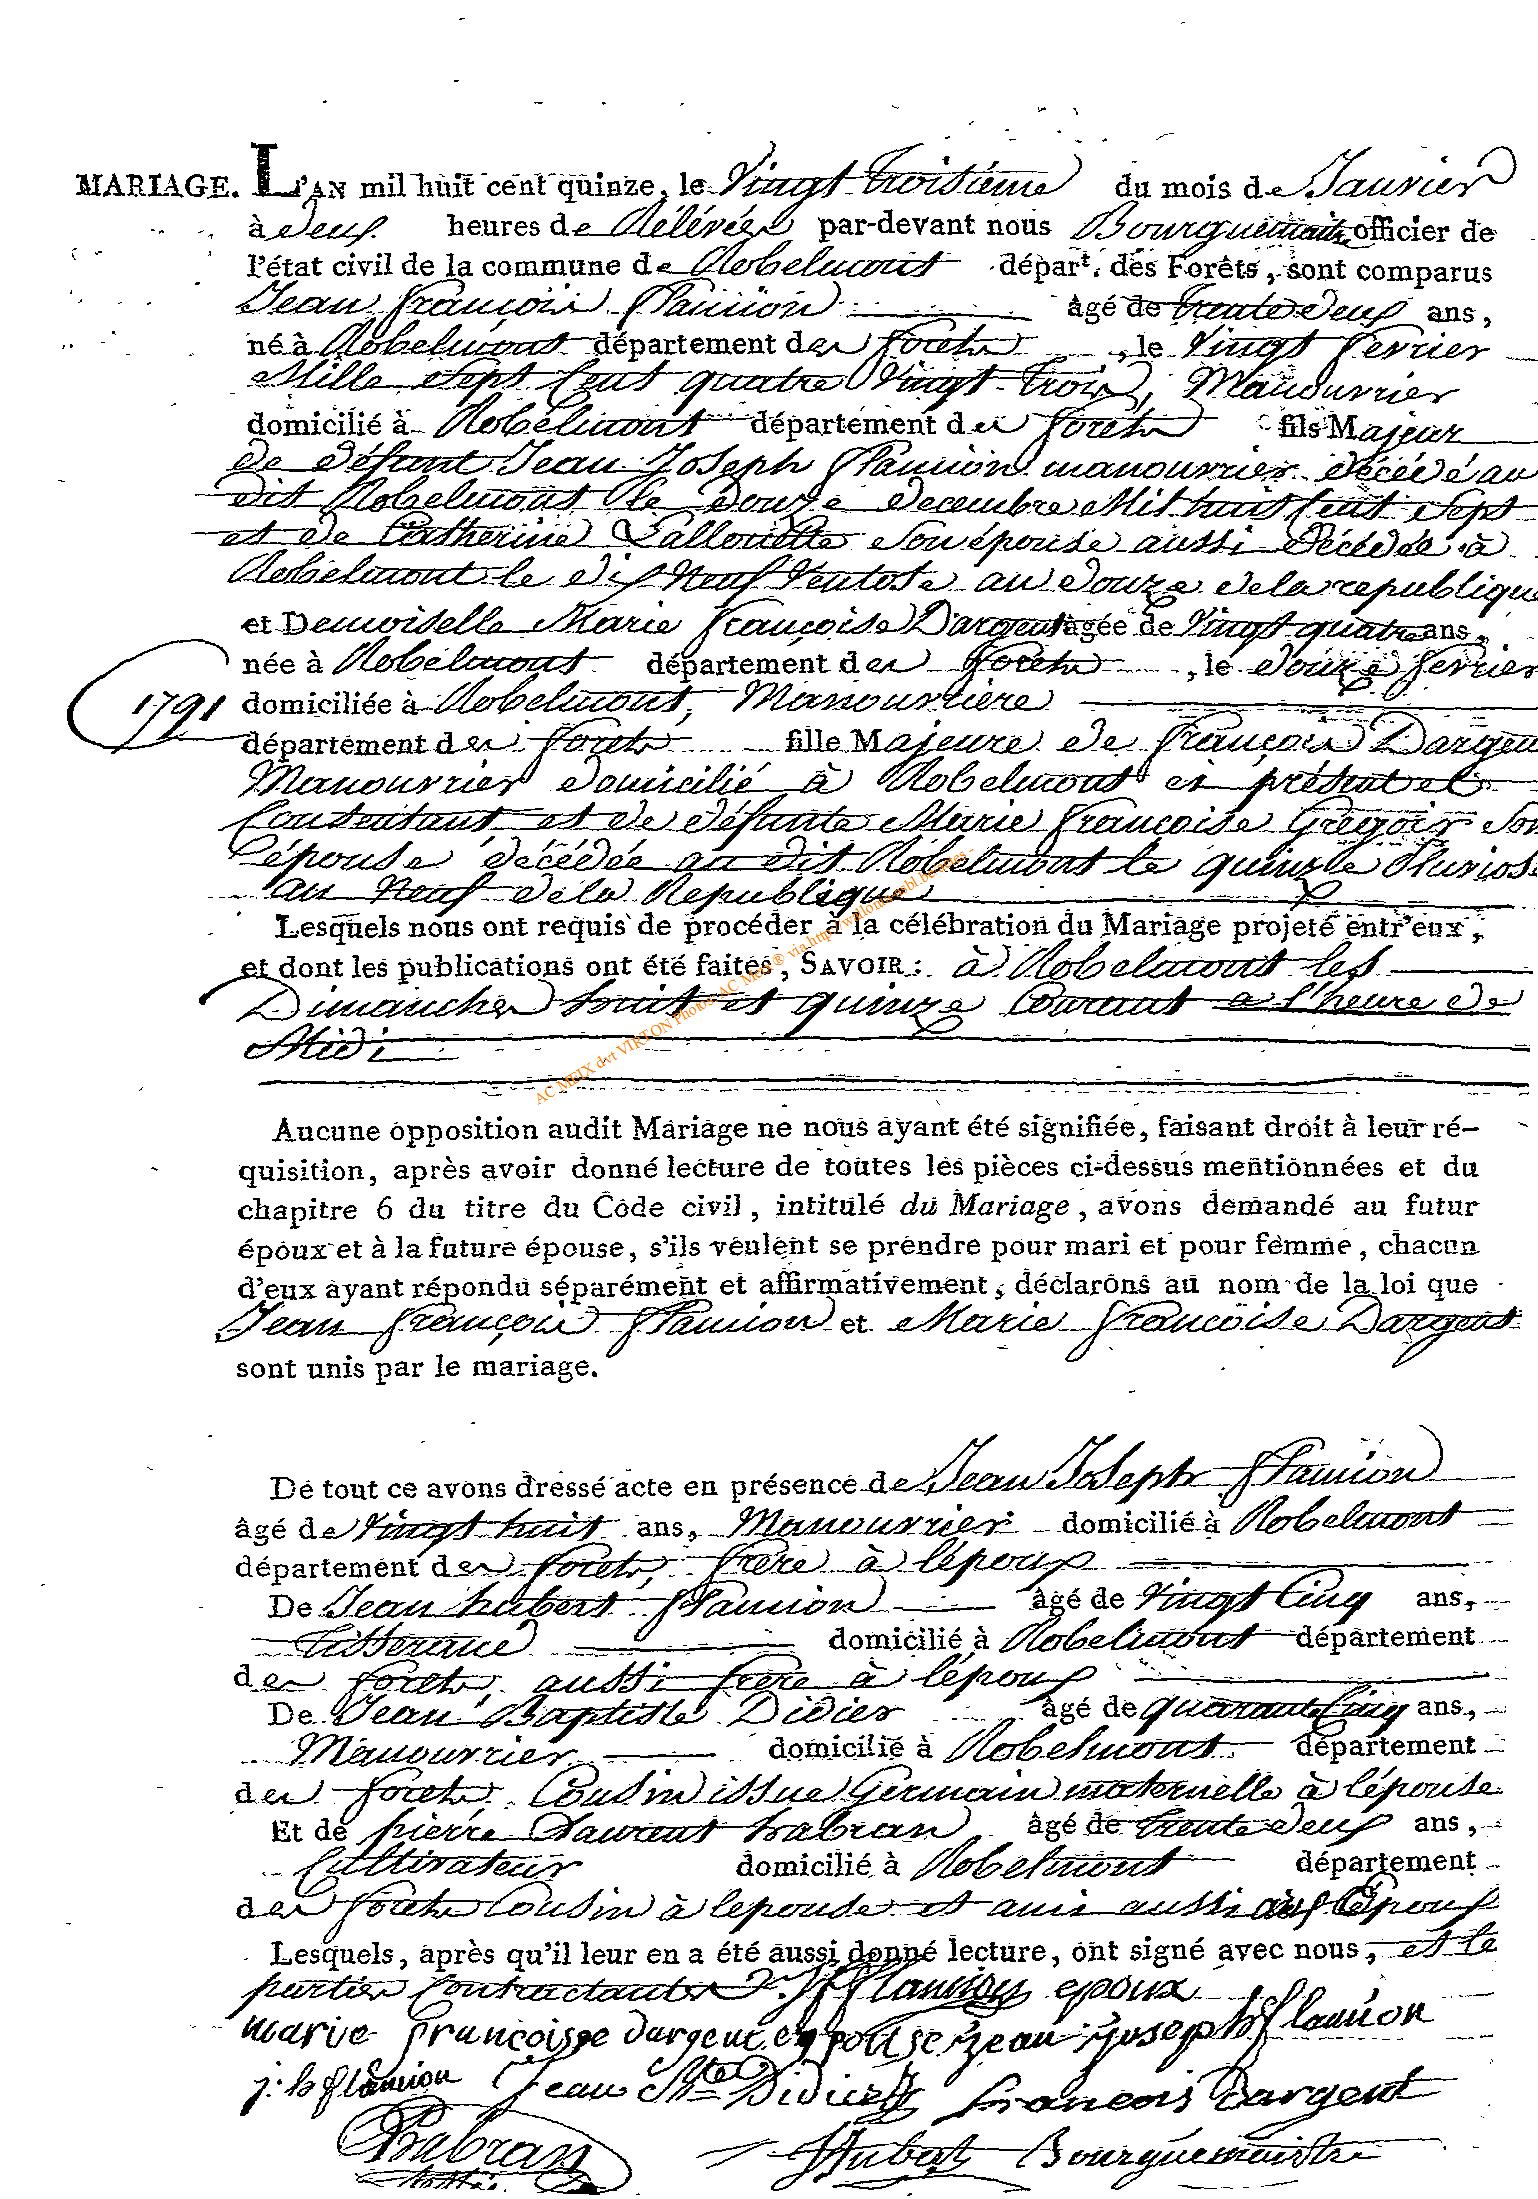 MARIAGE. L'AN mil huit cent quinze, le Vingt Troisième du mois de Janvier
à deux heures de Rélévée par-devant nous Bourguemaitre officier de
l'état civil de la commune de Robelmont départ. des Forêts, sont comparus
Jean François Flamion âgé de trente deux ans,
né à Robelmont département des forets, le Vingt fevrier
Mille Sept Cent quatre Vingt Trois, Manouvrier
domicilié à Robelmont département des forêts fils Majeur
de défunt Jean Joseph Flamion manouvrier décédé au
dit Robelmont le douze decembre Mil huit Cent Sept
et de Catherine Lallouette Son épouse aussi décédée à
Robelmont le dix Neuf Ventose an douze de la republique
et Demoiselle Marie françoise Dargent agée de Vingt quatre ans,
née à Robelmont département des forets, le douze fevrier
1791 domiciliée à Robelmont, Manouvrière
département des forets fille Majeure de françois Dargent
Manouvrier domicilié à Robelmont ci présent et
Consentant et de défunte Marie françoise Grégoir Son
épouse décédée au dit Robelmont le quinze Pluviose
an Neuf de la Republique
Lesquels nous ont requis de procéder à la célébration du Mariage projeté entr'eux,
et dont les publications ont été faites, SAVOIR: à Robelmont les
Dimanches huit et quinze Courant a l'heure de
Midi
AC MEIX dvt VIRTON Photos AC MEIX ® via http://
Aucune opposition audit Mariage ne nous ayant été signifiée, faisant droit à leur ré-
quisition, après avoir donné lecture de toutes les pièces ci-dessus mentionnées et du
chapitre 6 du titre du Code civil, intitulé du Mariage, avons demandé au futur
époux et à la future épouse, s'ils veulent se prendre pour mari et pour femme, chacun
d'eux ayant répondu séparément et affirmativement, déclarons au nom de la loi que
Jean françois Flamion et Marie françoise Dargent
sont unis par le mariage.
De tout ce avons dressé acte en présence de Jean Joseph Flamion
âgé de Vingt huit ans, Manouvrier domicilié à Robelmont
département des forets, frère à l'époux
De Jean hubert Flamion âgé de Vingt Cinq ans,
Tisserand domicilié à Robelmont département
des forets, aussi frère à l'époux
De Jean Baptiste Didier âgé de quarante Cinq ans,
Manouvrier domicilié à Robelmont département
des forets, Cousin issue Germain maternelle à l'épouse
Et de pierre Laurent habran âgé de trente deux ans,
Cultivateur domicilié à Robelmont département
des forets Cousin à l'epouse et ami aussi à l'Epoux
Lesquels, après qu'il leur en a été aussi donné lecture, ont signé avec nous, et le
parties Contractantes J. f flamion epoux
marie françoisse dargent epouse Jean joseph flamion
j: h flamion Jean Bte Didier francois Dargent
Habran Hubert Bourguemaistre